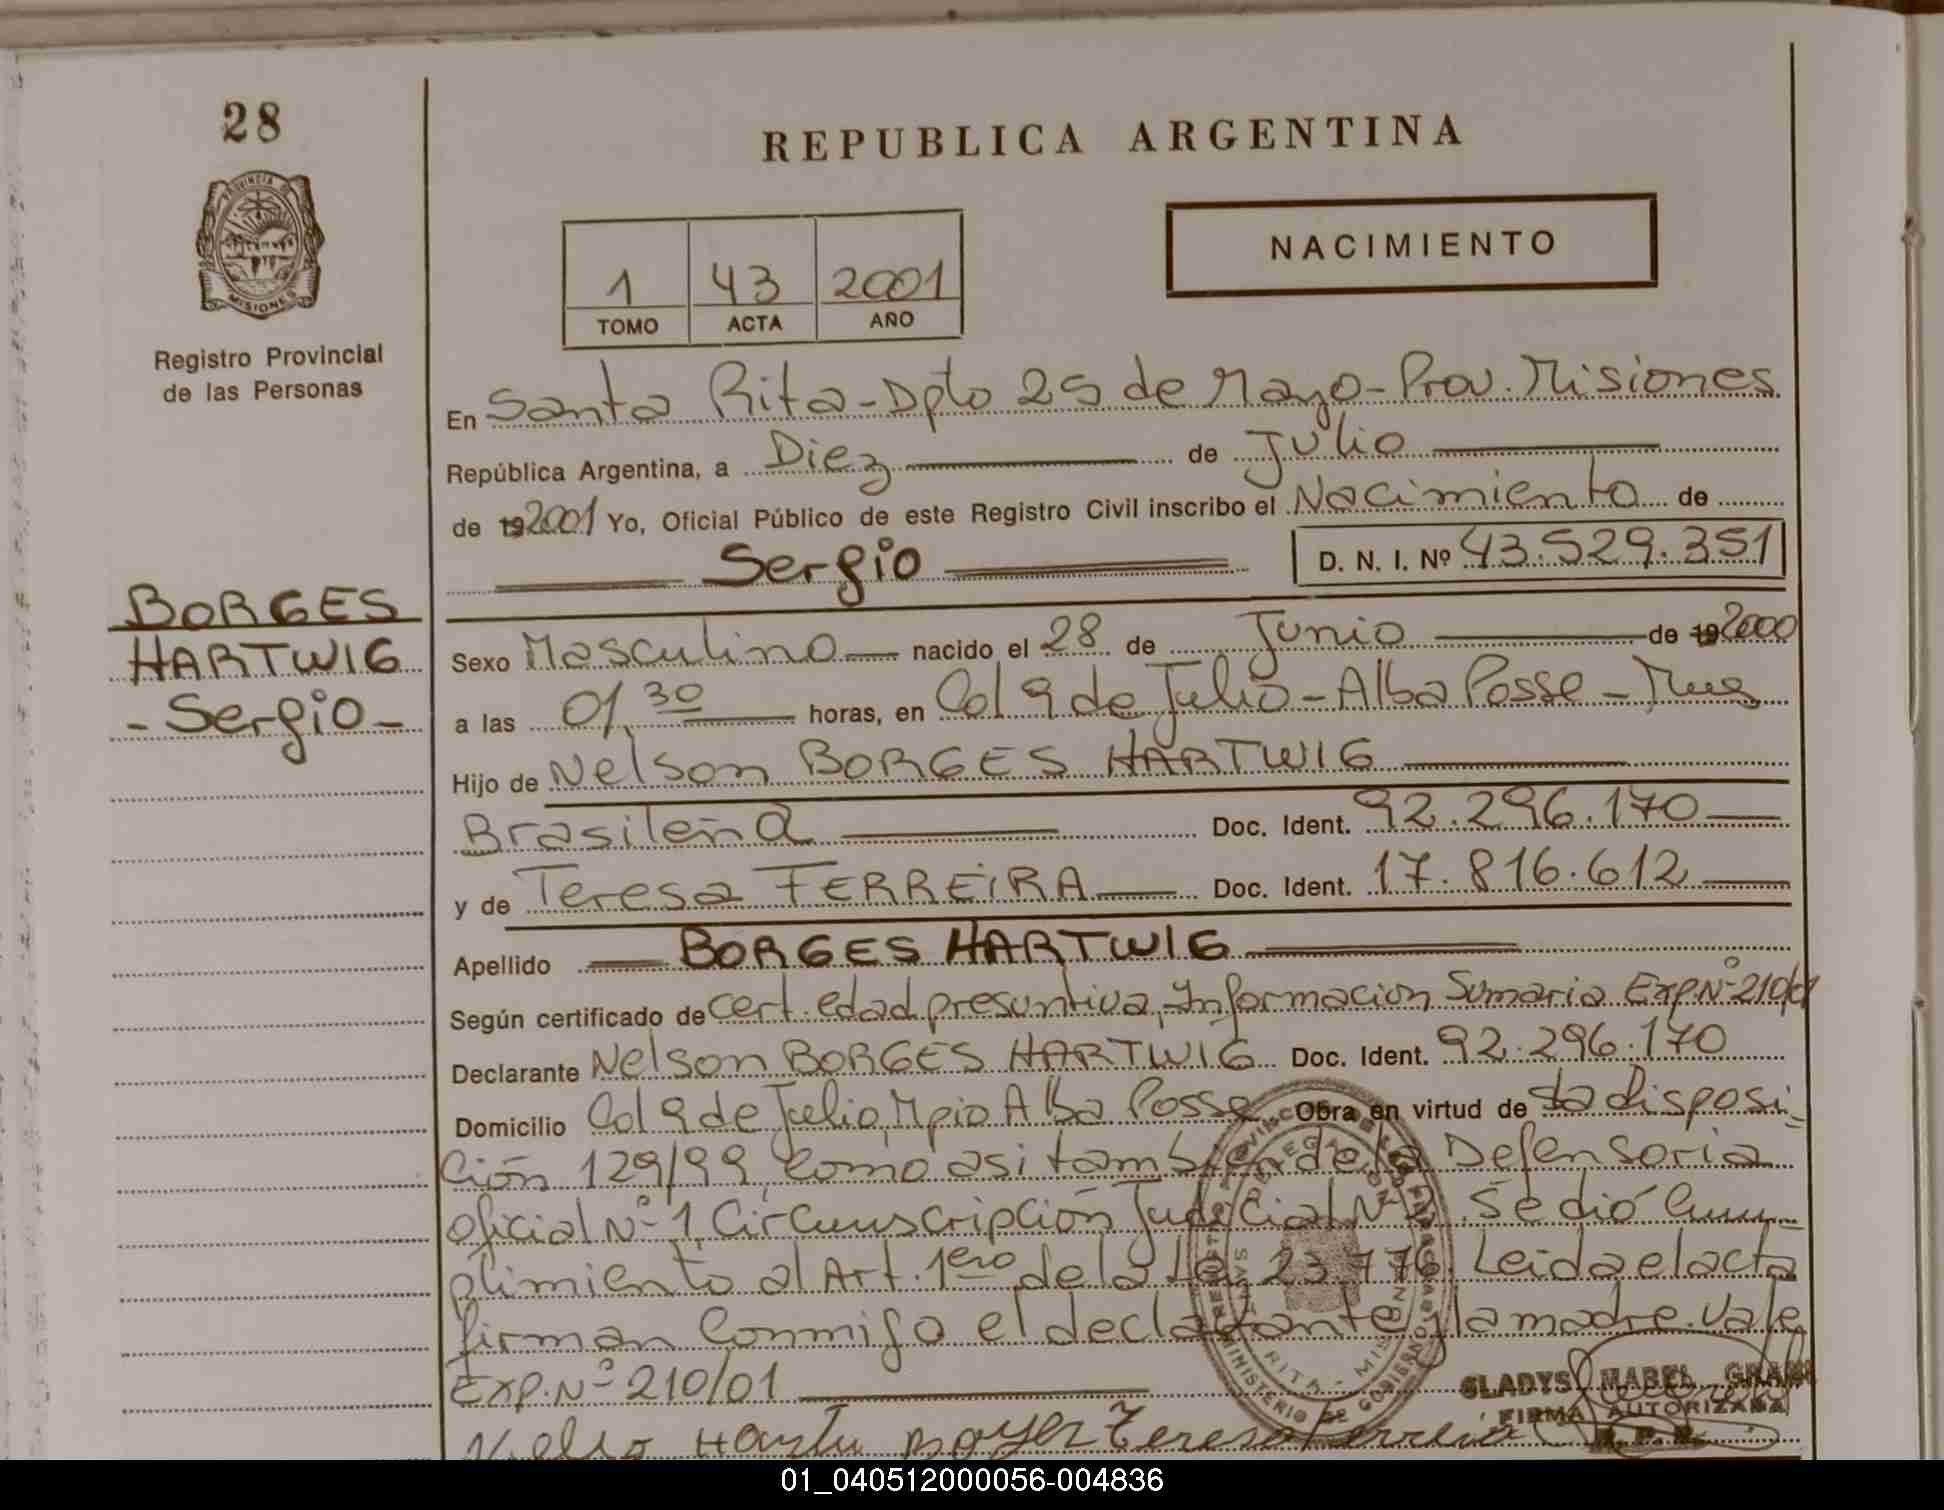 28
REPUBLICA ARGENTINA
PROVINCIA DE
MISIONES
Registro Provincial
de las Personas
NACIMIENTO
1 43 2001
TOMO ACTA AÑO
En Santa Rita - Dpto 25 de Mayo - Prov. Misiones
República Argentina, a Diez de Julio
de 192001 Yo, Oficial Público de este Registro Civil inscribo el Nacimiento de
Sergio D. N. I. Nº 43.529.351
BORGES
HARTWIG
- Sergio -
Sexo Masculino nacido el 28 de Junio de 192000
a las 01,30 horas, en Col 9 de Julio - Alba Posse - Mnes
Hijo de Nelson BORGES HARTWIG
Brasileña Doc. Ident. 92.296.170
y de Teresa FERREIRA Doc. Ident. 17.816.612
Apellido BORGES HARTWIG
Según certificado de cert. edad presuntiva, Información Sumaria Exp. Nº 210/01
Declarante Nelson BORGES HARTWIG Doc. Ident. 92.296.170
Domicilio Col 9 de Julio, Mpio Alba Posse Obra en virtud de sta disposi-
ción 129/99, como asi tambien de la Defensoria
oficial Nº 1 Circunscripción Judicial Nº 2. Se dió Cum-
plimiento al Art. 1ero de la Ley 23.776. Leida el acta
firman Conmigo el declarante y la madre. Vale
Exp. Nº 210/01
GLADYS MABEL
FIRMA AUTORIZADA
Teresa Ferreira
01_040512000056-004836